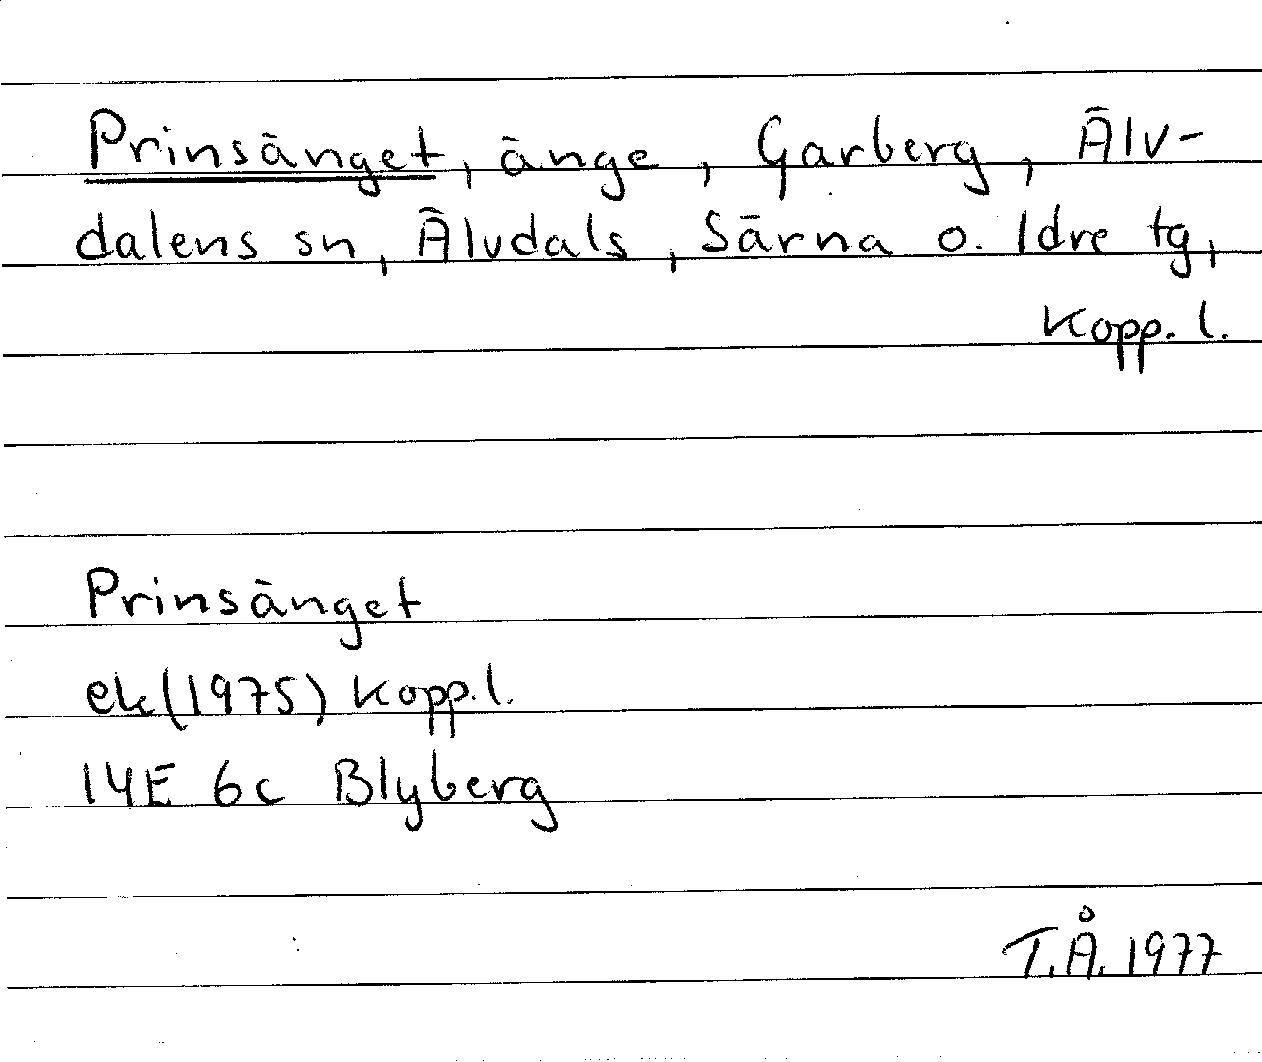 Prinsänget, änge, Garberg, Älv-
dalens sn, Älvdals, Särna o. Idre tg,
Kopp. l.
Prinsänget
ek(1975) Kopp.l.
14E 6c Blyberg
T.Å. 1977